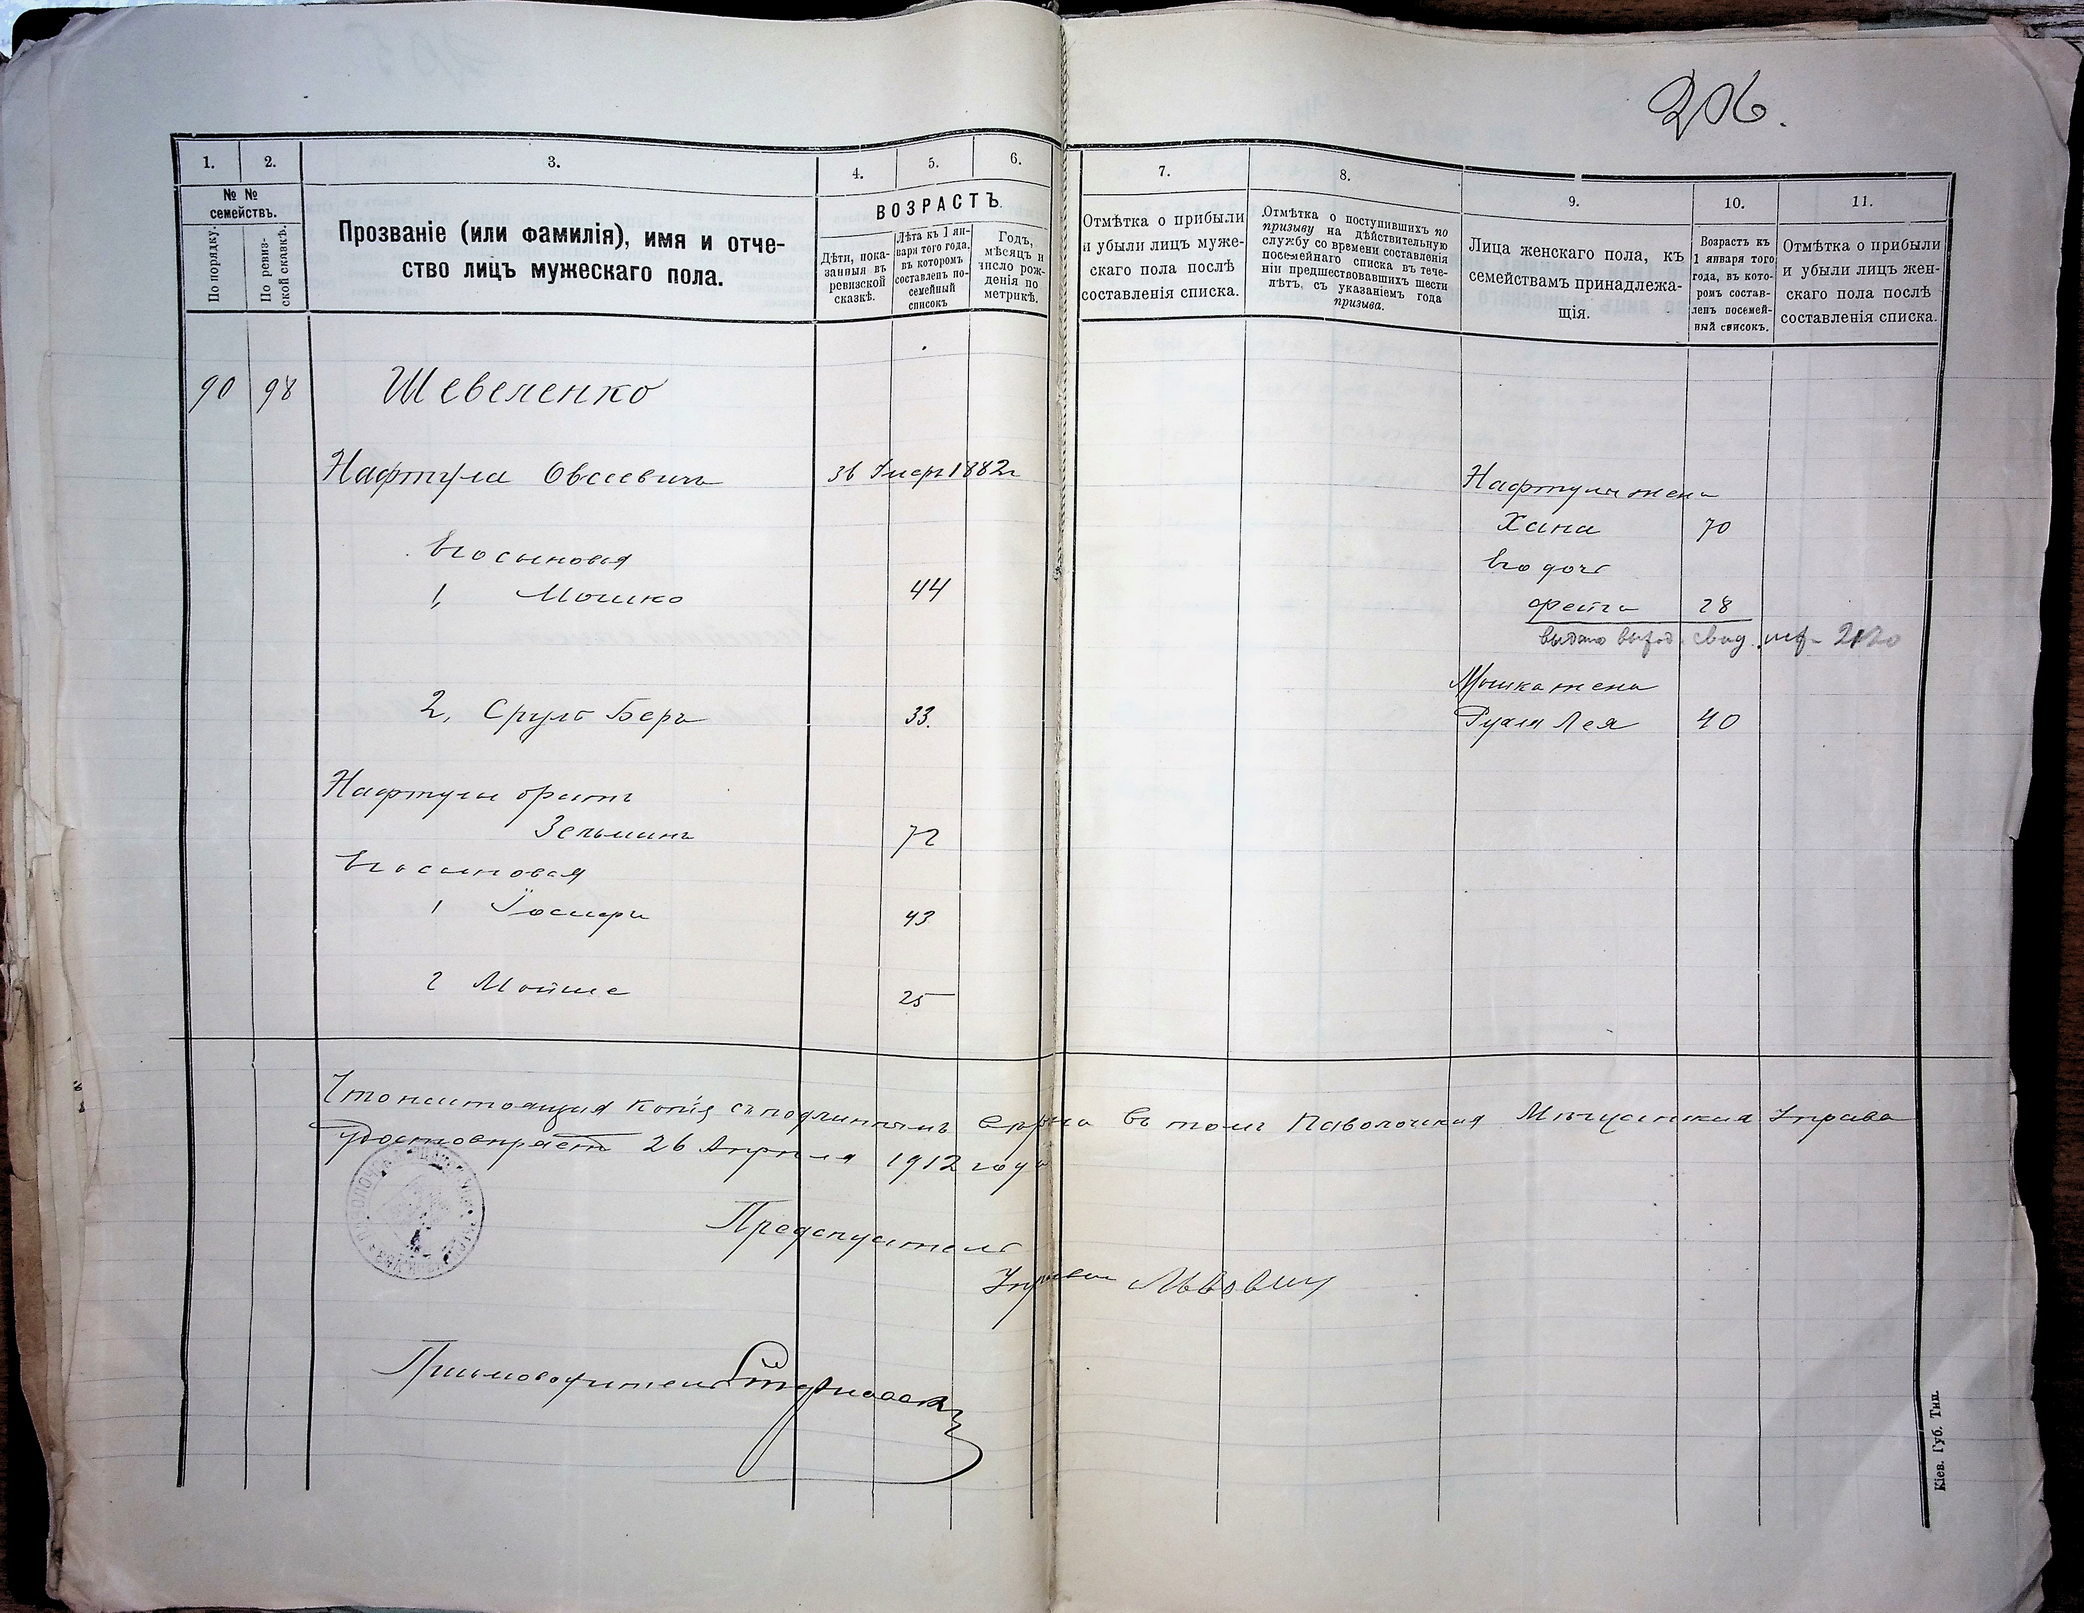 206.
1.
2.
3.
4.
5.
6.
7.
8.
9.
10.
11.
№ №
семействъ.
По порядку.
По ревиз-
ской сказкѣ.
Прозваніе (или фамилія), имя и отче-
ство лицъ мужескаго пола.
ВОЗРАСТЪ.
Дѣти, пока-
занныя въ
ревизской
сказкѣ.
Лѣта къ 1 ян-
варя того года,
въ которомъ
составленъ по-
семейный
списокъ
Годъ,
мѣсяцъ и
число рож-
денія по
метрикѣ.
Отмѣтка о прибыли
и убыли лицъ муже-
скаго пола послѣ
составленія списка.
Отмѣтка о поступившихъ по
призыву на дѣйствительную
службу со времени составленія
посемейнаго списка въ тече-
ніи предшествовавшихъ шести
лѣтъ, съ указаніемъ года
призыва.
Лица женскаго пола, къ
семействамъ принадлежа-
щія.
Возрастъ къ
1 января того
года, въ кото-
ромъ состав-
ленъ посемей-
ный списокъ.
Отмѣтка о прибыли
и убыли лицъ жен-
скаго пола послѣ
составленія списка.
90 98 Шевеленко
Нафтула Овсеевичъ 36 Умеръ 1882 г
Его сыновья
1, Мошко 44
2, Сруль Беръ 33.
Нафтулы братъ
Зельманъ 72
Его сыновья
1 Іосифъ 43
2 Мойше 25
Нафтулы жена
Хана 70
Его дочь
Фейга 28
выдано свид. 2120
Мошка жена
Лея 40
Что настоящая копія съ подлиннымъ вѣрна въ томъ Паволочская Мѣщанская Управа
удостовѣряетъ 26 Апрѣля 1912 года
Предсѣдатель
Управы Львович
Письмоводитель
Кіев. Губ. Тип.